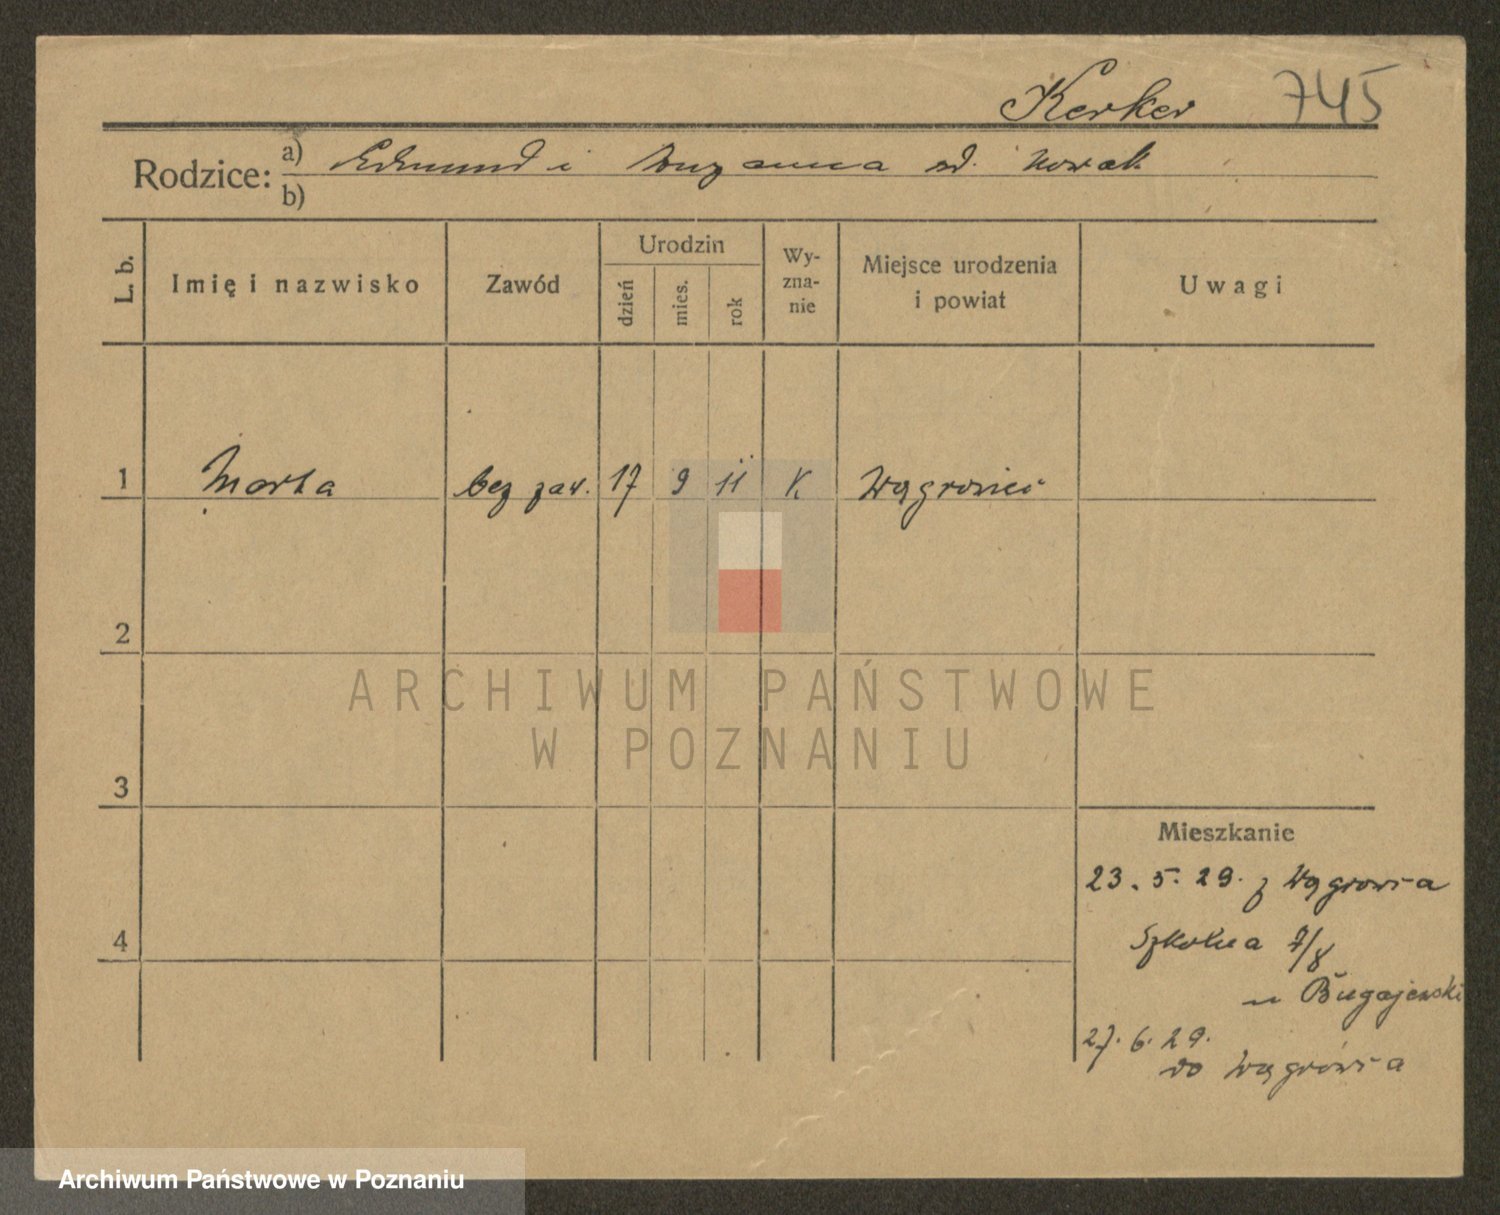 Kerker 745
Rodzice: a) Edmund i Zuzanna zd. Nowak
b)
L. b. Imię i nazwisko Zawód Urodzin dzień mies. rok Wy-zna-nie Miejsce urodzenia i powiat Uwagi
1 Marta bez zaw. 17 9 11 K Wągrowiec
2
3
4
Mieszkanie
23. 5. 29. z Wągrowca
Szkolna 7/8
u Bugajewski
27. 6. 29.
do Wągrówca
ARCHIWUM PAŃSTWOWE
W POZNANIU
Archiwum Państwowe w Poznaniu